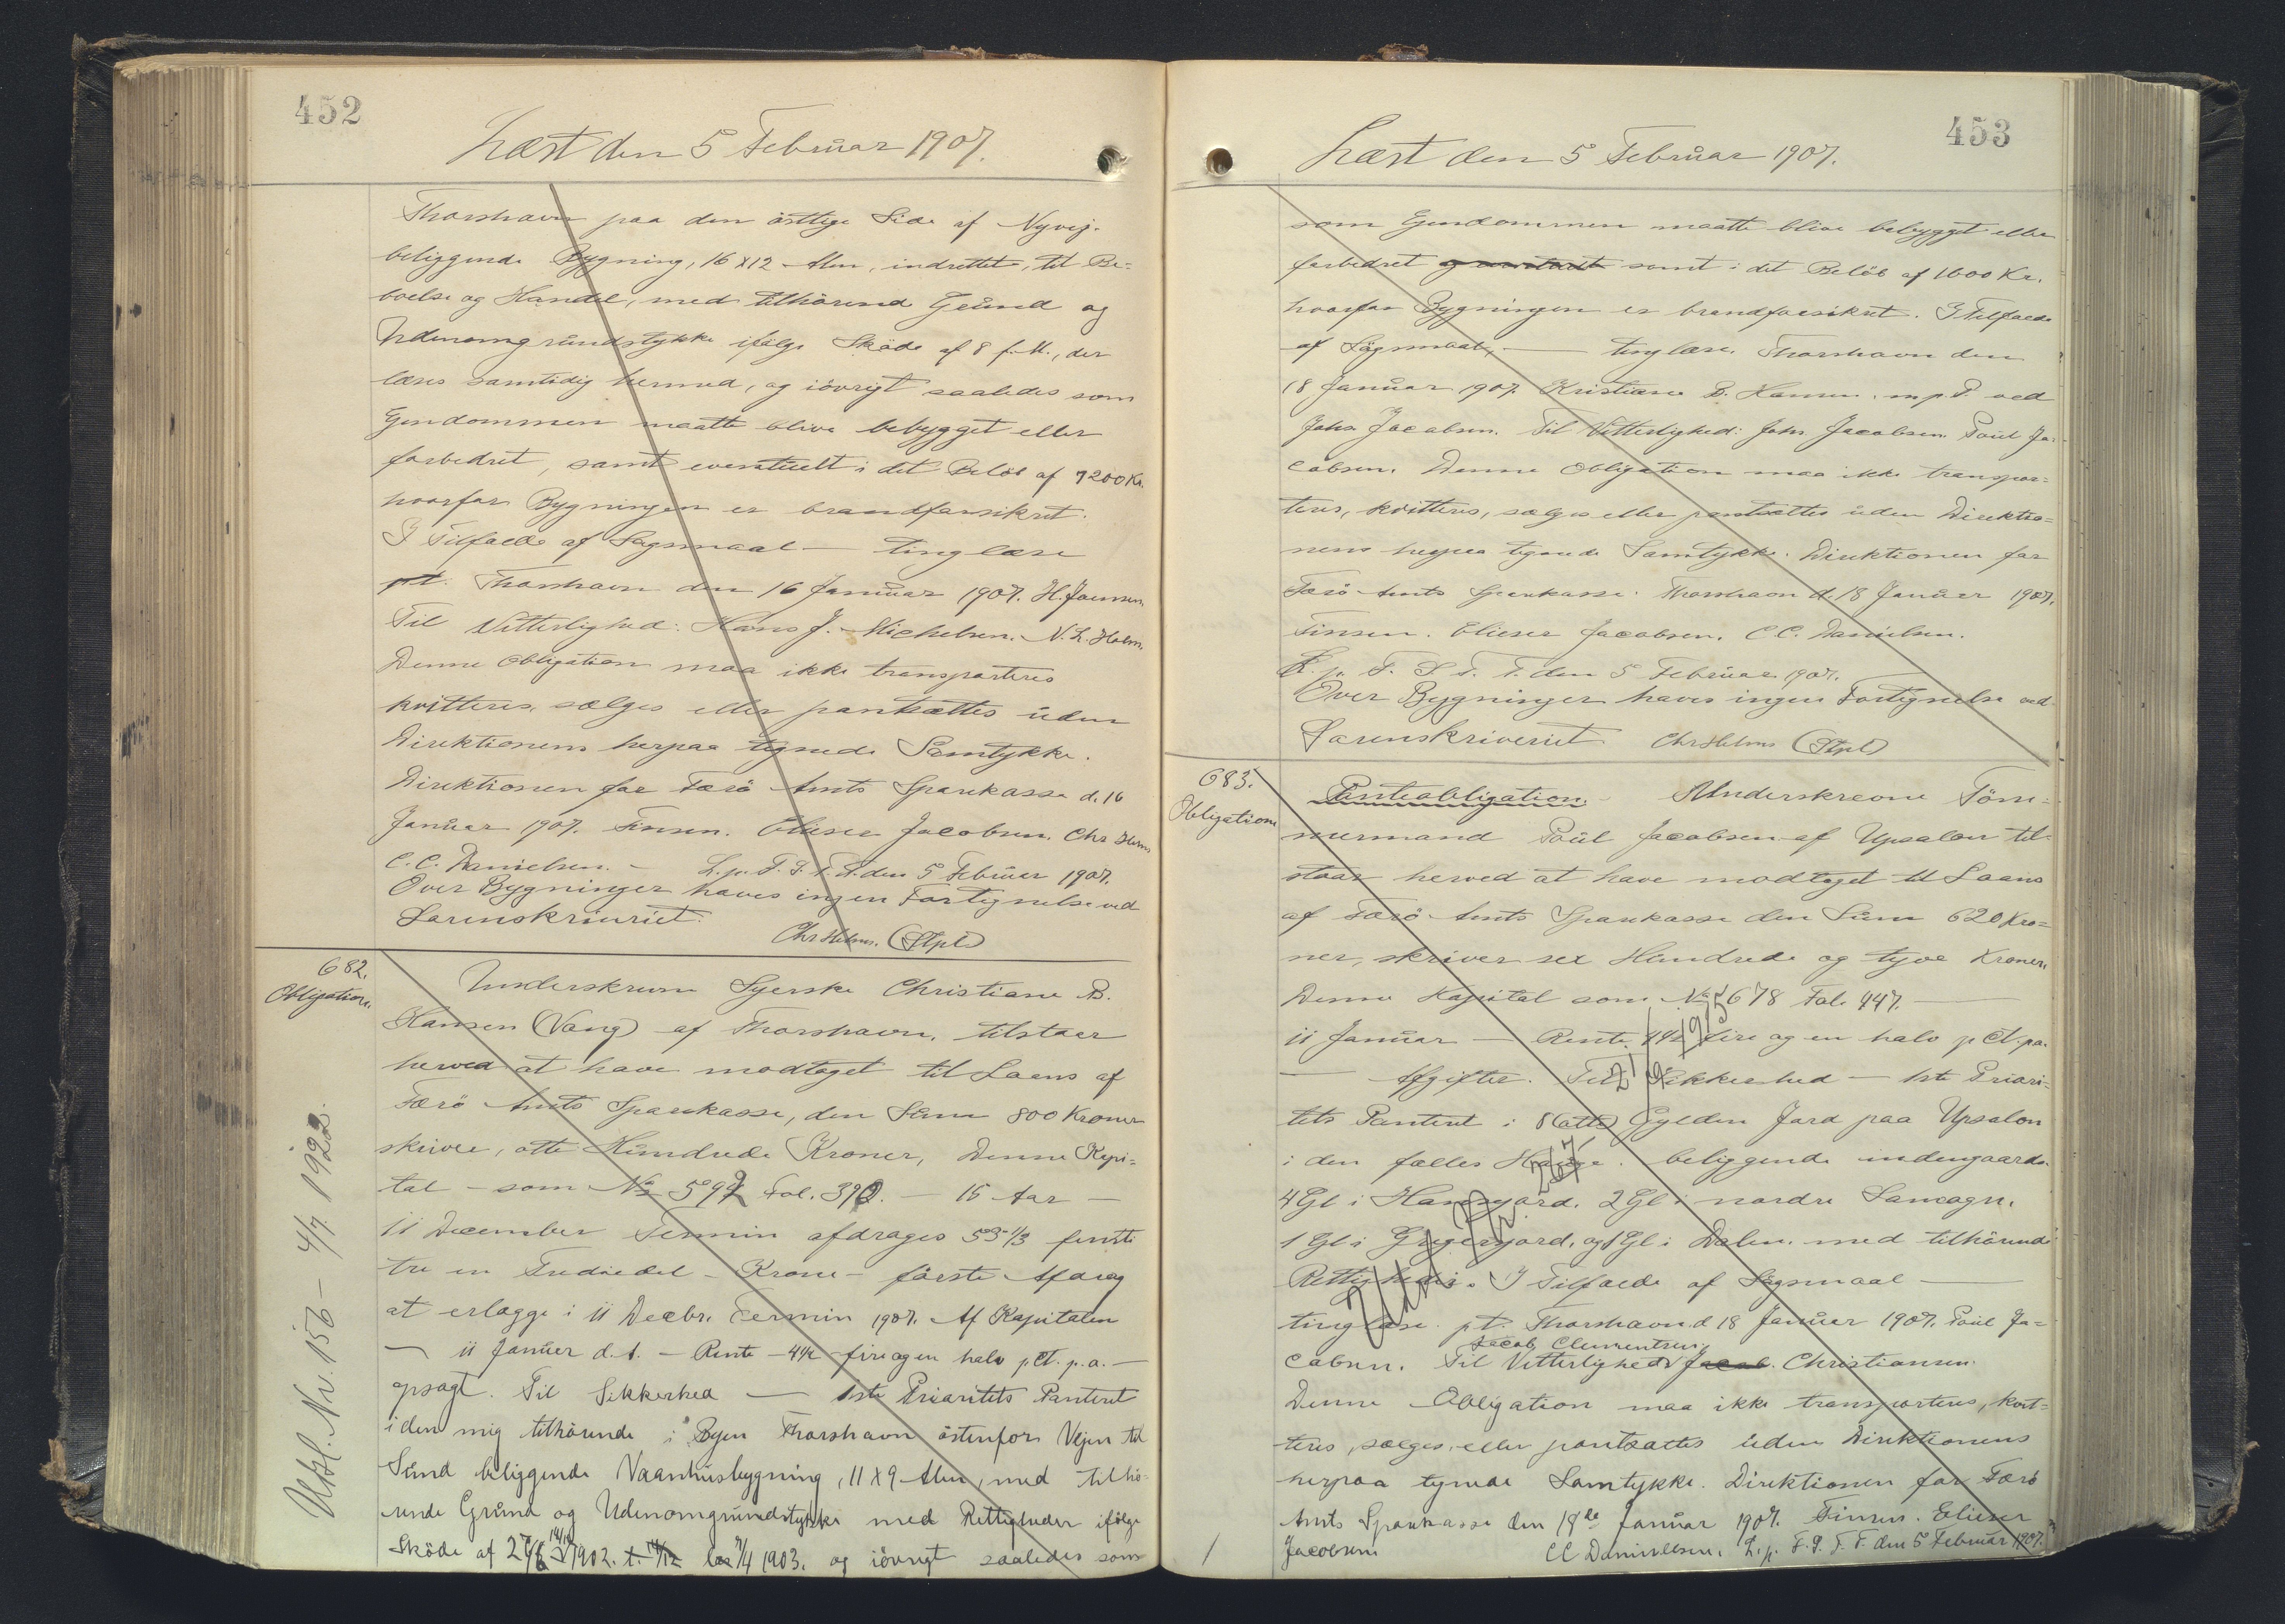 452
Læst den 5 Februar 1907.
Thorshavn paa den östlige Side af Nyvej.
beliggende Bygning, 16 x 12 Alen, indrettet, til Be=
boelse og Handel, med tilhörende Grund og
Udenomgrundstykke ifölge Sköde af 8 f. M., der
læses samtidig hermed, og iövrigt saaledes som
Ejendommen maatte blive bebygget eller
forbedret, samt eventuelt i det Belöb af 7200 Kr.
hvorfor Bygningen er brandforsikret.
I Tilfælde af Sögsmaal — tinglæse
pt. Thorshavn den 16 Januar 1907. H. Joensen.
Til Vitterlighed: Hans J. Michelsen. N. L. Holm.
Denne Obligation maa ikke transporteres
kvitteres, sælges eller pantsættes uden
Direktionens herpaa tegnede Samtykke.
Direktionen for Færö Amts Sparekasse d. 16
Januar 1907. Finsen. Elieser Jacobsen. Chr Helms
C. C. Danielsen. — L. p. F. S. T. T. den 5 Februar 1907.
Over Bygninger haves ingen Fortegnelse ved
Sorenskriveriet.
Chr Helms. (Stpl)
682.
Obligation.
Underskrevne Syerske Christiane B.
Hansen (Vang) af Thorshavn, tilstaar
herved at have modtaget til Laans af
Færö Amts Sparekasse, den Sum 800 Kroner
skriver, otte Hundrede Kroner, Denne Kapi=
tal — som No 592 Fol. 390. — 15 Aar —
11 December Termin afdrages 53 1/3 femti
tre en Trediedel — Krone — förste Afdrag
at erlægge i 11 Decbr. Termin 1907. Af Kapitalen
— 11 Januar d. A. — Rente — 4 1/2 fire og en halv pCt. p. a. —
opsagt. Til Sikkerhed — 1ste Prioritets Panteret
i den mig tilhörende i Byen Thorshavn östenfor Vejen til
Sund beliggende Vaanhusbygning, 11 x 9 Alen, med tilhö=
rende Grund og Udenomgrundstykke med Rettigheder ifölge
Sköde af 1902. 7/4 1903. og iövrigt saaledes som
Udsl. Nr. 156 — 4/7 1922.
453
Læst den 5 Februar 1907.
som Ejendommen maatte blive bebygget eller
forbedret samt i det Belöb af 1600 Kr.
hvorfor Bygningen er brandforsikret. I Tilfælde
af Sögsmaal, — tinglæse. Thorshavn den
18 Januar 1907. Kristiane B. Hansen. m. p. P. ved
Johs Jacobsen. Til Vitterlighed: Johs Jacobsen Poul Ja=
cobsen. Denne Obligation maa ikke transpor=
teres, kvitteres, sælges eller pantsættes uden Direktio=
nens herpaa tegnede Samtykke. Direktionen for
Færö Amts Sparekasse. Thorshavn d. 18 Januar 1907.
Finsen. Elieser Jacobsen. C. C. Danielsen.
L. p. F. S. T. T. den 5 Februar 1907.
Over Bygninger haves ingen Fortegnelse ved
Sorenskriveriet Chr Helms (Stpl)
683.
Obligation
Panteobligation. — Underskrevne Töm=
mermand Poul Jacobsen af Upsalon til-
staar herved at have modtaget til Laans
af Færö Amts Sparekasse den Sum 620 Kro=
ner, skriver sex Hundrede og tyve Kroner.
Denne Kapital som No 678 Fol. 447. —
11 Januar — Rente 4 1/2 fire og en halv pCt. pa.
— Afgifter. Til Sikkerhed — 1ste Priori=
tets Panteret i 8 (otte) Gylden Jord paa Upsalon
i den fælles Hauge. beliggende indengaards
4 Gl i Hansgard. 2 Gl i nordre
1 Gl i og 1 Gl i Dalen. med tilhörende
Rettigheder. I Tilfælde af Sögsmaal —
tinglæse. pt. Thorshavn d 18 Januar 1907. Poul Ja=
Jacob Clementsen,
cobsen. Til Vitterlighed: Jacob. Christiansen.
Denne Obligation maa ikke transporteres, kvit=
teres, sælges, eller pantsættes uden Direktionens
herpaa tegnede Samtykke. Direktionen for Færö
Amts Sparekasse den 18de Januar 1907. Finsen. Elieser
Jacobsen CC Danielsen. L. p. F. S. T. T. den 5 Februar 1907.